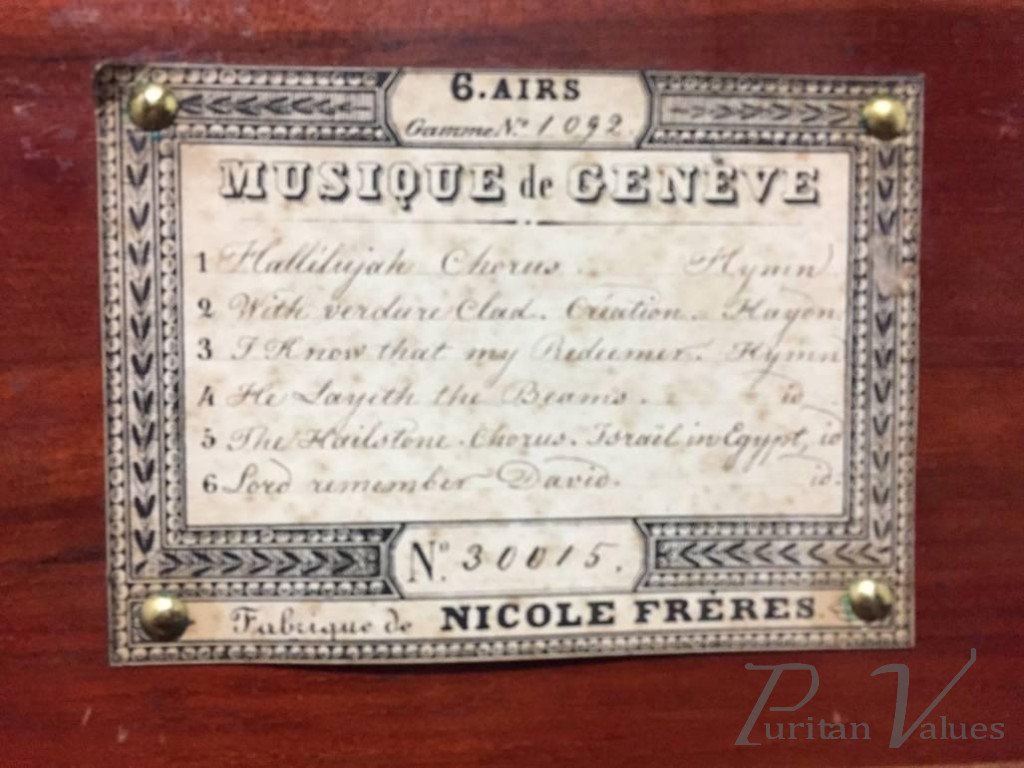 6. AIRS
Gamme Nº 1092
MUSIQUE de GENÈVE
1 Hallilujah Chorus. Hymn
2 With verdure Clad. Création. Haydn
3 I Know that my Redeemer. Hymn
4 He Layeth the Beams. id
5 The Hailstone Chorus. Israël in Egypt, id
6 Lord remember David. id.
Nº 30015.
Fabrique de NICOLE FRÈRES
Puritan Values